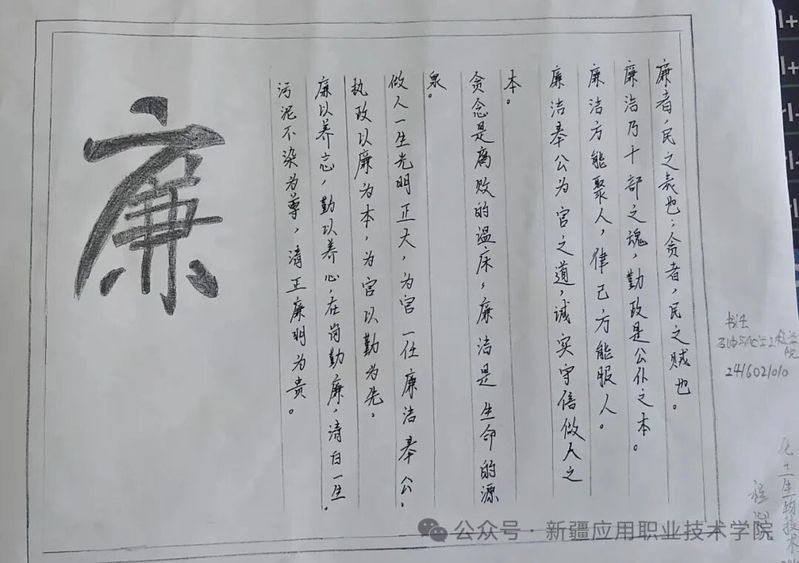 廉者，民之表也；贪者，民之贼也。
廉洁乃干部之魂，勤政是公仆之本。
廉洁方能聚人，律己方能服人。
廉洁奉公为官之道，诚实守信做人之
本。
贪念是腐败的温床，廉洁是生命的源
泉。
做人一生光明正大，为官一任廉洁奉公，
执政以廉为本，为官以勤为先。
廉以养志，勤以养心，在岗勤廉，清白一生。
污泥不染为尊，清正廉明为贵。
廉
书法
院
241602010
化工生物技术
公众号·新疆应用职业技术学院